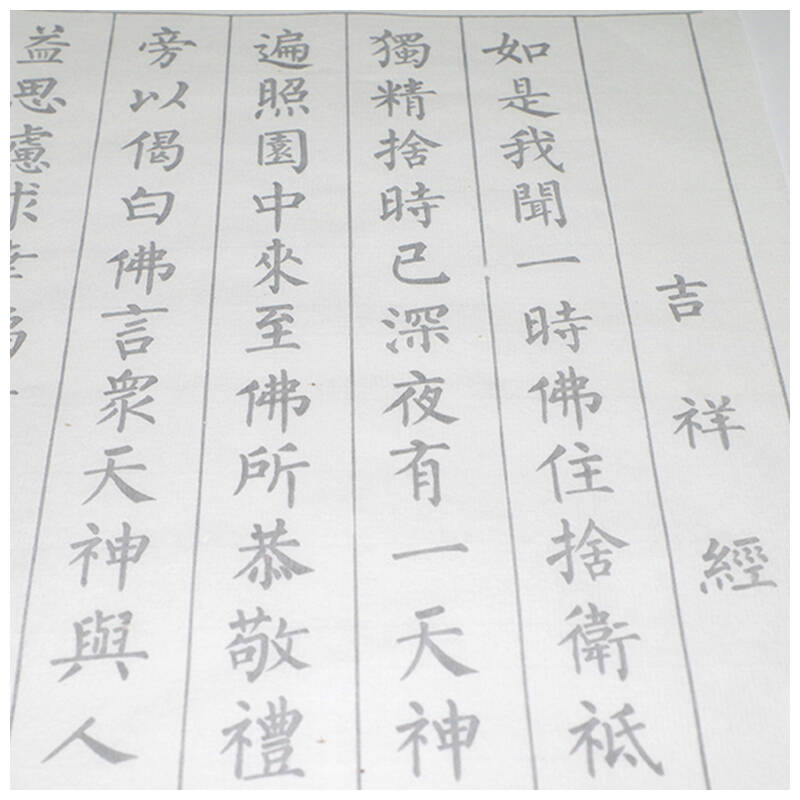 吉祥經
如是我聞一時佛住捨衛祗
獨精捨時已深夜有一天神
遍照園中來至佛所恭敬禮
旁以偈白佛言眾天神與人
益思慮求幸